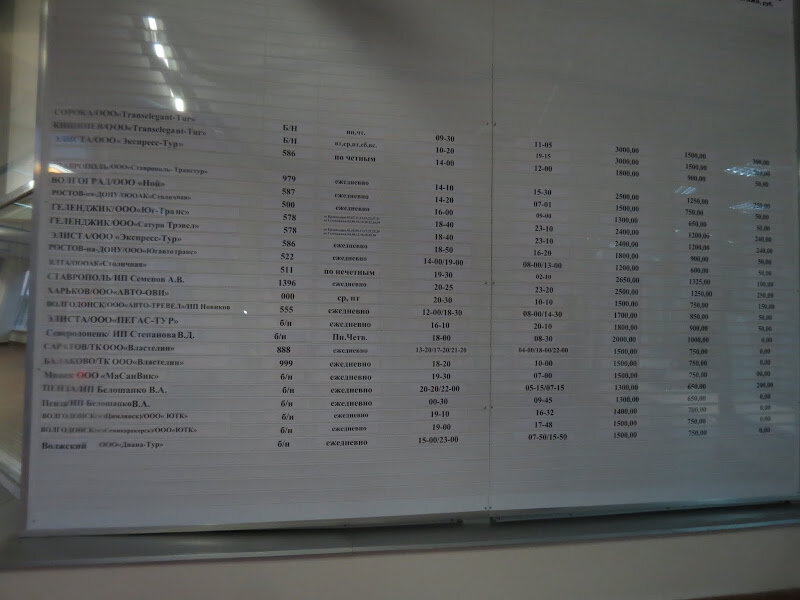 СОРОКА/ООО«Transelegant-Tur» Б/Н пн.чт. 09-30 11-05 3000,00 1500,00 300,00
КИШИНЕВ/ООО«Transelegant-Tur» Б/Н вт,ср,пт,сб,вс. 10-20 19-15 3000,00 1500,00
ЭЛИСТА/ООО« Экспресс-Тур» 586 по четным 14-00 12-00 1800,00 900,00 50,00
СТАВРОПОЛЬ/ООО«Ставрополь-Транстур» 979 ежедневно 14-10 15-30 2500,00 1250,00 250,00
ВОЛГОГРАД/ООО «Ной» 587 ежедневно 14-20 07-01 1500,00 750,00 50,00
РОСТОВ-на-ДОНУ /ЮОАК«Столичная» 500 ежедневно 16-00 09-00 1300,00 650,00 50,00
ГЕЛЕНДЖИК/ООО«Юг-Транс» 578 18-40 23-10 2400,00 1200,00 240,00
ГЕЛЕНДЖИК/ООО«Сатурн Трэвел» 578 18-40 23-10 2400,00 1200,00 240,00
ЭЛИСТА/ООО «Экспресс-Тур» 586 18-50 16-20 1800,00 900,00 50,00
РОСТОВ-на-ДОНУ/ООО«Югавтотранс» 522 ежедневно 14-00/19-00 08-00/13-00 1200,00 600,00 50,00
ЯЛТА/ЮОАК«Столичная» 511 по нечетным 19-30 02-10 2650,00 1325,00 100,00
СТАВРОПОЛЬ/ИП Семенов А.В. 1396 ежедневно 20-25 23-20 2500,00 1250,00 250,00
ХАРЬКОВ/ООО«АВТО-ОВИ» 000 ср, пт 20-30 10-10 1500,00 750,00 150,00
ВОЛГОДОНСК/ООО«АВТО-ТРЕВЕЛ»/ИП Новиков 555 ежедневно 12-00/18-30 08-00/14-30 1700,00 850,00 50,00
ЭЛИСТА/ООО«ПЕГАС-ТУР» б/н ежедневно 16-10 20-10 1800,00 900,00 50,00
Северодонецк/ ИП Степанова В.Д. б/н Пн.Четв. 18-00 08-30 2000,00 1000,00 0,00
САРАТОВ/ТК ООО«Властелин» 888 ежедневно 13-20/17-20/21-20 04-00/18-00/22-00 1500,00 750,00 0,00
БАЛАКОВО/ТК ООО«Властелин» 999 ежедневно 18-20 10-00 1500,00 750,00 0,00
Минск ООО «МаСанВик» б/н ежедневно 19-30 07-00 1500,00 750,00
ПЕНЗА/ИП Белошапко В.А. б/н ежедневно 20-20/22-00 05-15/07-15 1300,00 650,00 200,00
Пенза/ИП БелошапкоВ.А. б/н ежедневно 00-30 09-45 1300,00 650,00 0,00
ВОЛГОДОНСК(Цимлянск)/ООО« ЮТК» б/н ежедневно 19-10 16-32 1400,00 700,00 0,00
ВОЛГОДОНСК(Семикаракорск)/ООО«ЮТК» б/н ежедневно 19-00 17-48 1500,00 750,00 0,00
Волжский ООО«Диана-Тур» б/н ежедневно 15-00/23-00 07-50/15-50 1500,00 750,00 0,00